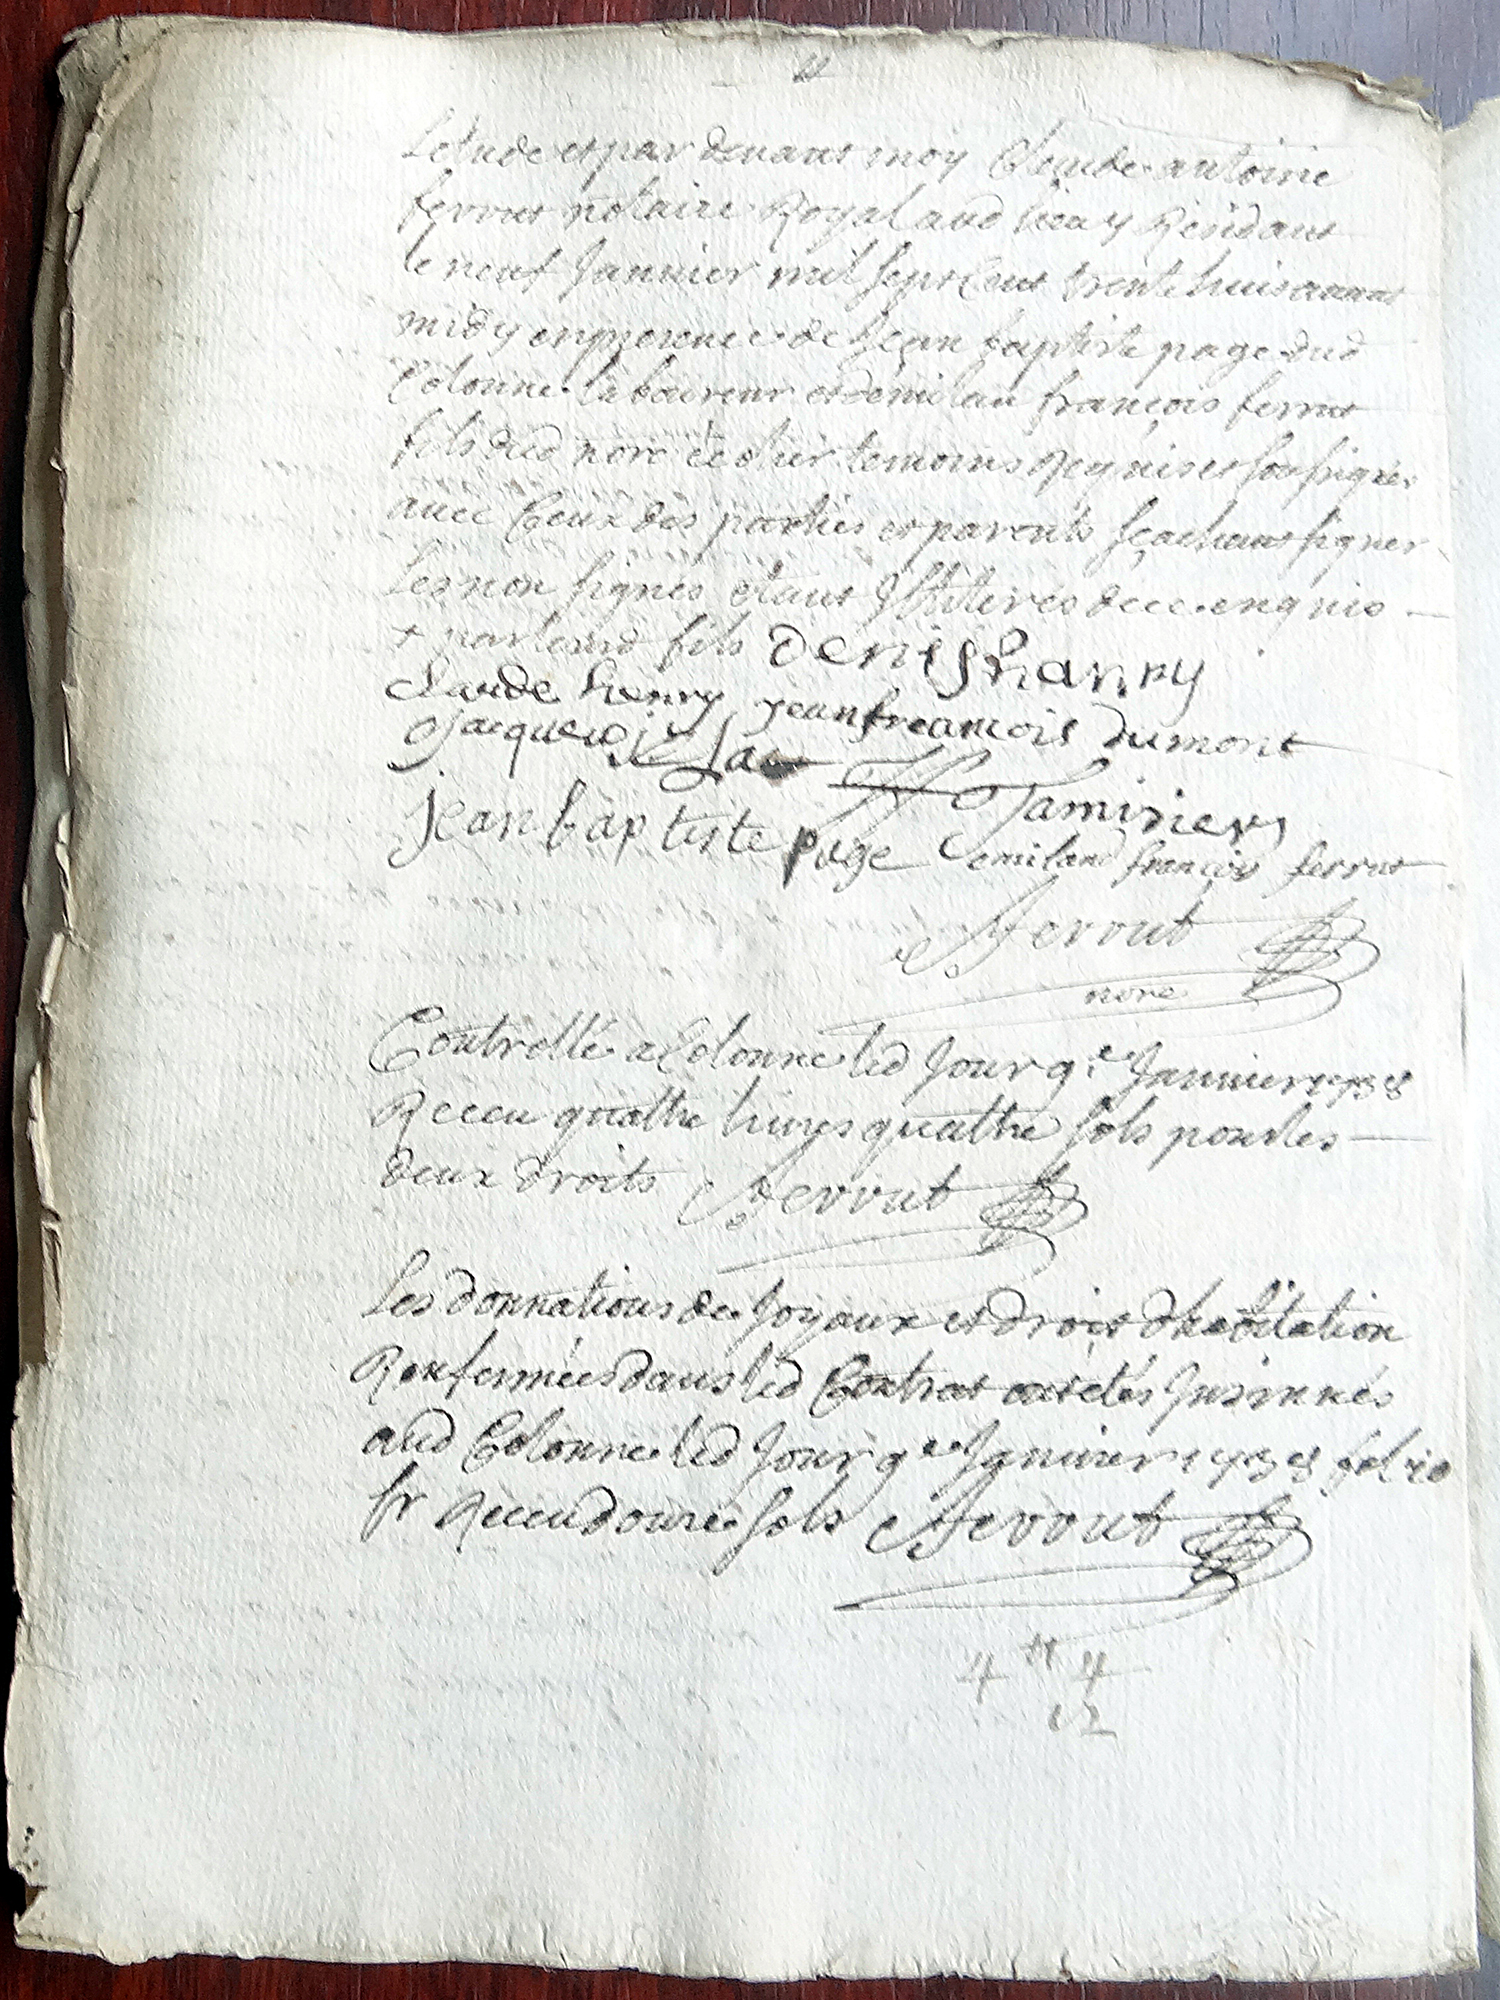 Letude et par devant moy Claude antoine
ferrut notaire Royal aud lieu y Residant
le neuf Janvier mil sept Cent trente huit avant
midy en presence de Jean baptiste page dud
Colonne laboureur et demilan françois ferrut
fils dud nore écolier temoins Requis et sousignés
avec Ceux des parties et parents sçachant signer
Les non signés etant Illiteres de ce enquis
+ par led fils Denis hanry
claude henry jean freancois dumont
Jacque
Jaminiers
jean baptiste page Emiland françois ferrut
ferrut
nore
Controllé a Colonne led Jour 9.e Janvier 1738
Receu quattre livres quattre sols pour les
deux droits ferrut
Les donnations de Joyaux et droit d'habitation
Renfermées dans led Contrat ont étés Insinués
aud Colonne led Jour 9e Janvier 1738 fol 20
Receu douze sols ferrut
4 tt 4
12